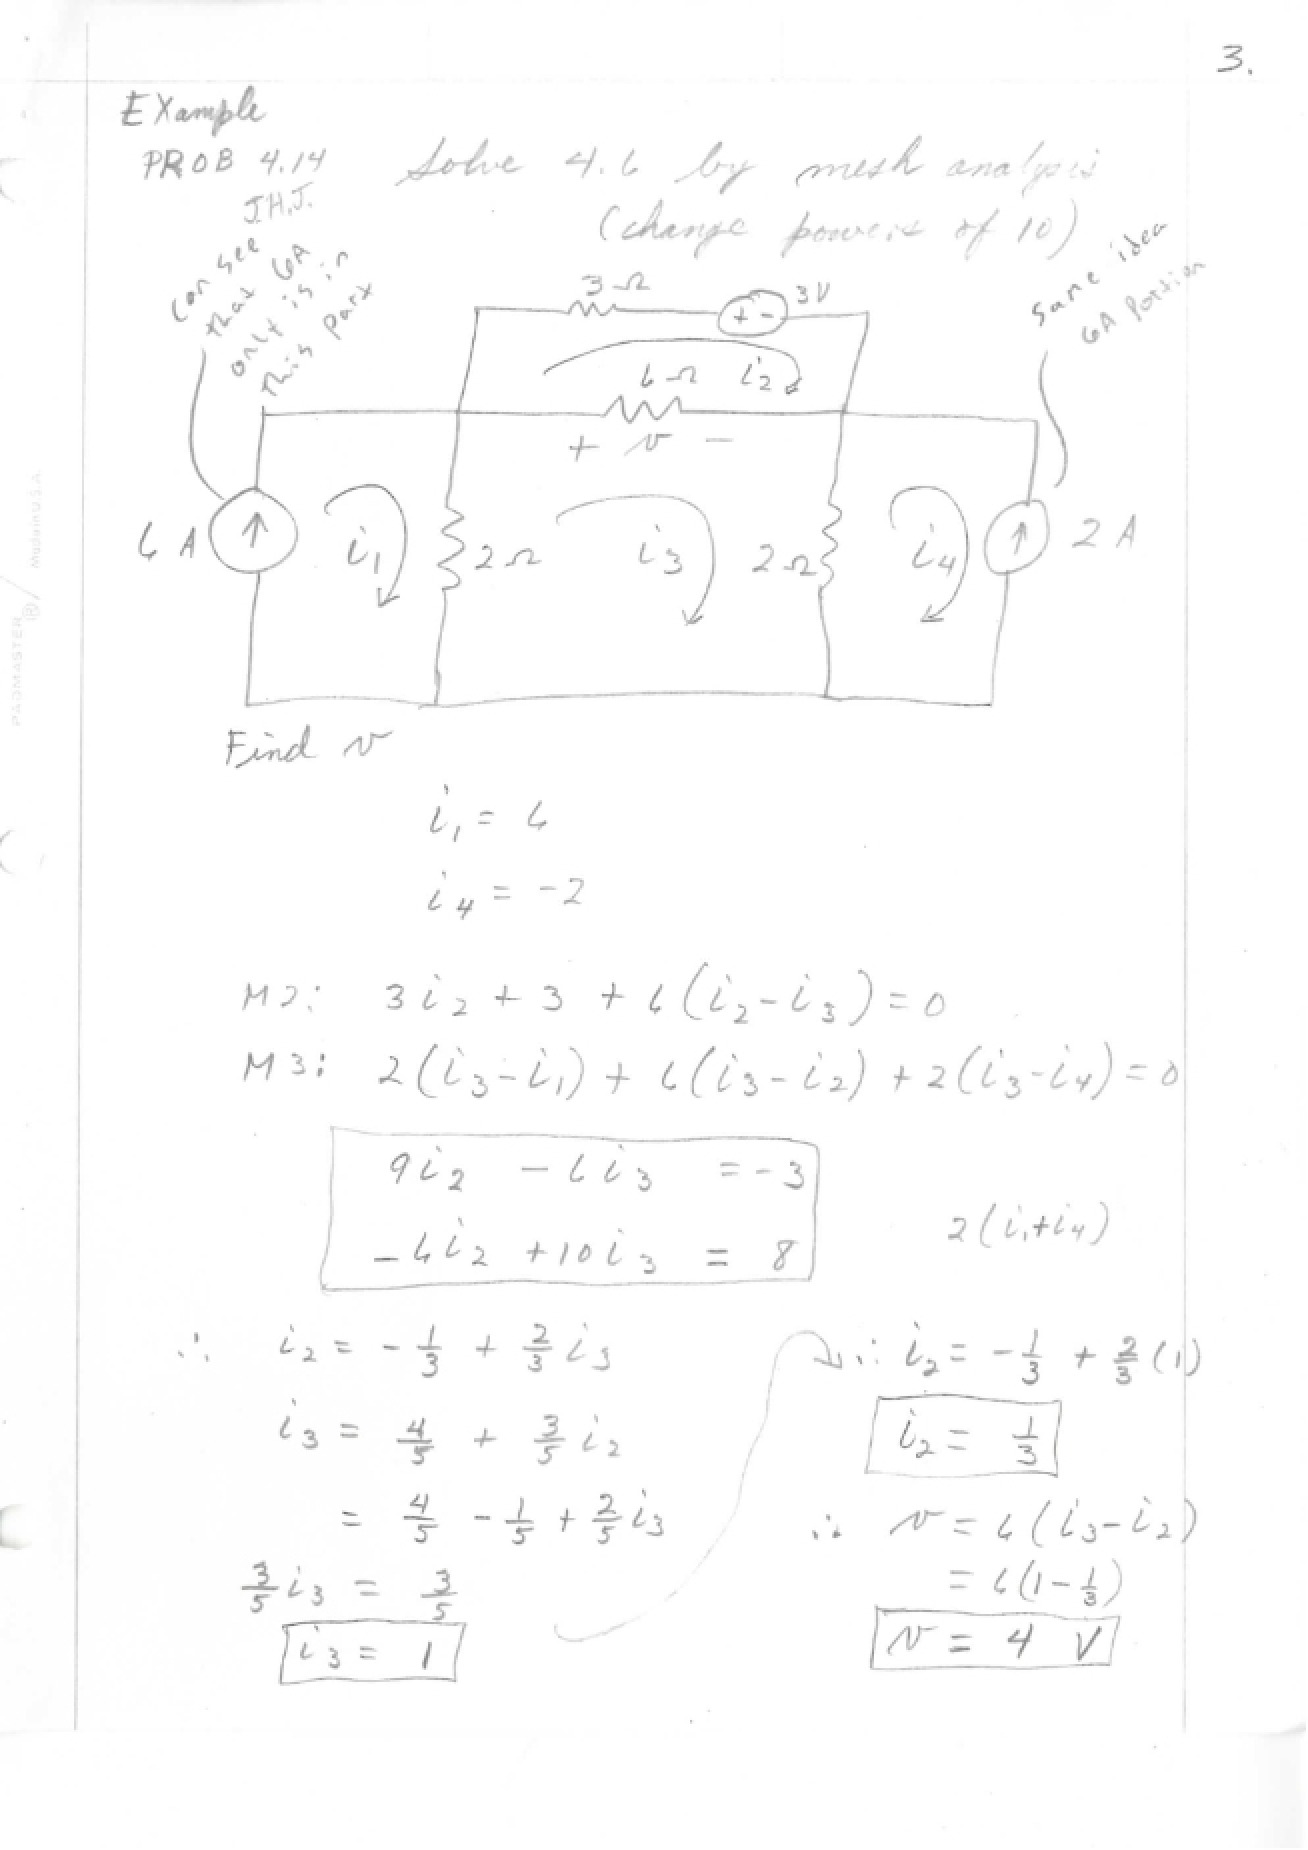 3.
Example
PROB 4.14 Solve 4.6 by mesh analysis
J.H.J. (change powers of 10)
can see
that 6A
only is in
this part
same idea
6A portion
3Ω
+ - 3V
6Ω i₂
+ v -
6 A ↑ i₁ 2Ω i₃ 2Ω i₄ ↑ 2 A
PADMASTER ® / Made in U.S.A.
Find v
i₁ = 6
i₄ = -2
M2: 3i₂ + 3 + 6(i₂-i₃) = 0
M3: 2(i₃-i₁) + 6(i₃-i₂) + 2(i₃-i₄) = 0
9i₂ - 6i₃ = -3
-6i₂ + 10i₃ = 8
2(i₁+i₄)
∴ i₂ = -1/3 + 2/3 i₃
i₃ = 4/5 + 3/5 i₂
= 4/5 - 1/5 + 2/5 i₃
3/5 i₃ = 3/5
i₃ = 1
∴ i₂ = -1/3 + 2/3 (1)
i₂ = 1/3
∴ v = 6(i₃-i₂)
= 6(1-1/3)
v = 4 V